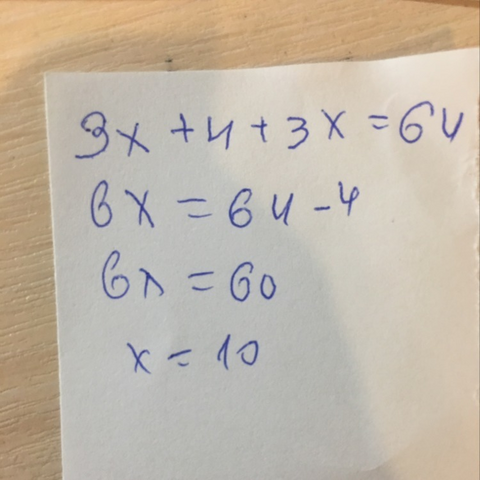 3x + 4 + 3x = 64
6x = 64 - 4
6x = 60
x = 10